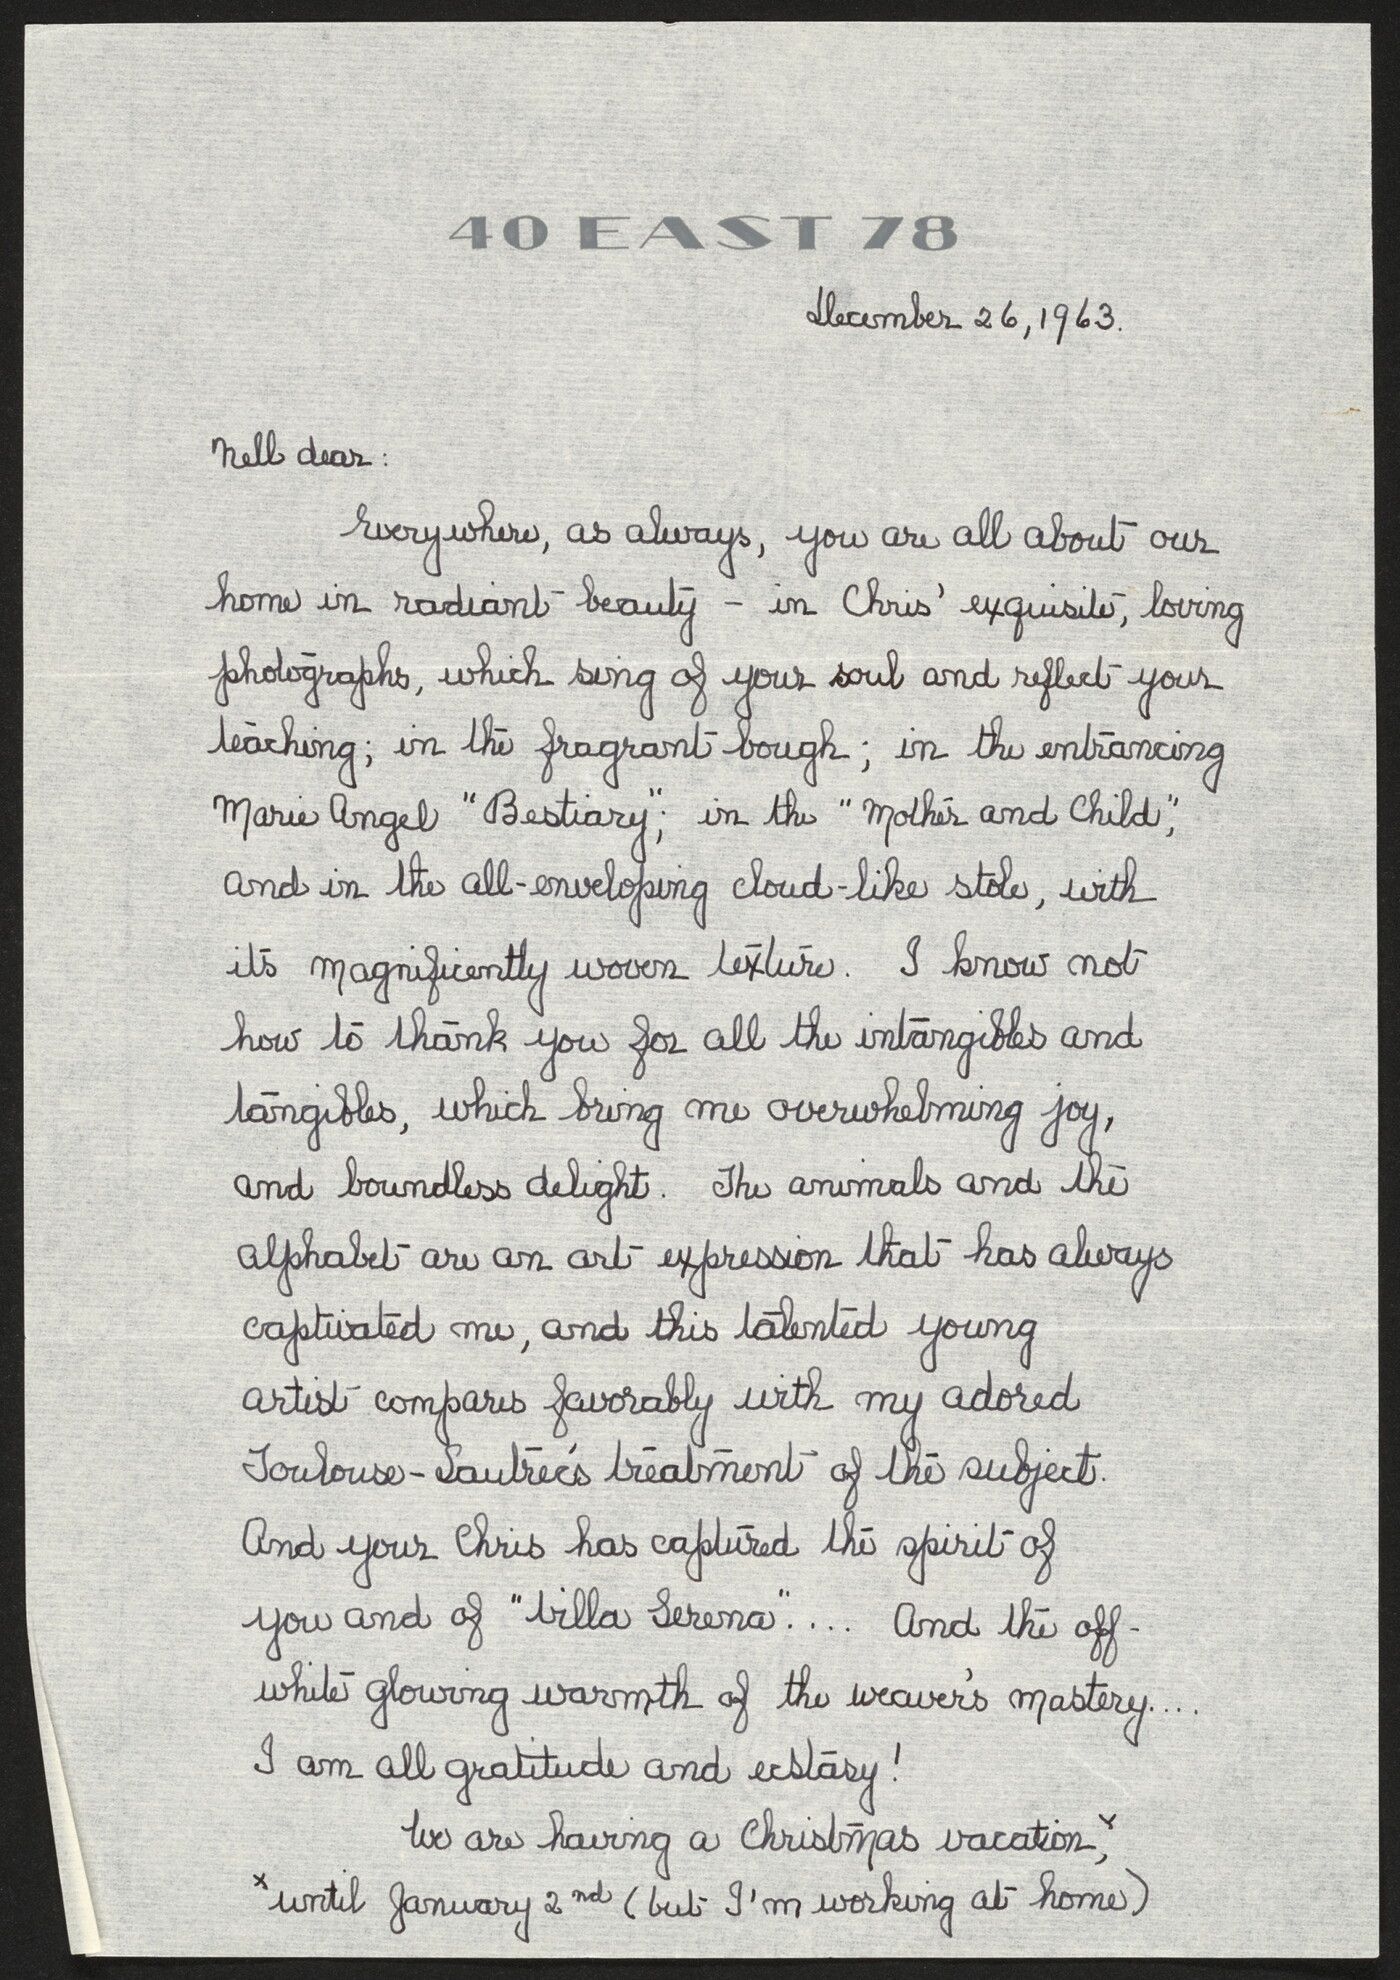 40 EAST 78
December 26, 1963.
Nell dear:
Everywhere, as always, you are all about our
home in radiant beauty - in Chris' exquisite, loving
photographs, which sing of your soul and reflect your
teaching; in the fragrant bough; in the entrancing
Marie Angel "Bestiary"; in the "Mother and Child",
and in the all-enveloping cloud-like stole, with
it's magnificently woven texture. I know not
how to thank you for all the intangibles and
tangibles, which bring me overwhelming joy,
and boundless delight. The animals and the
alphabet are an art expression that has always
captivated me, and this talented young
artist compares favorably with my adored
Toulouse-Lautrec's treatment of the subject.
And your Chris has captured the spirit of
you and of "Villa Serena".... And the off-
white glowing warmth of the weaver's mastery....
I am all gratitude and ecstasy!
We are having a Christmas vacation,x
x until January 2nd (but I'm working at home)